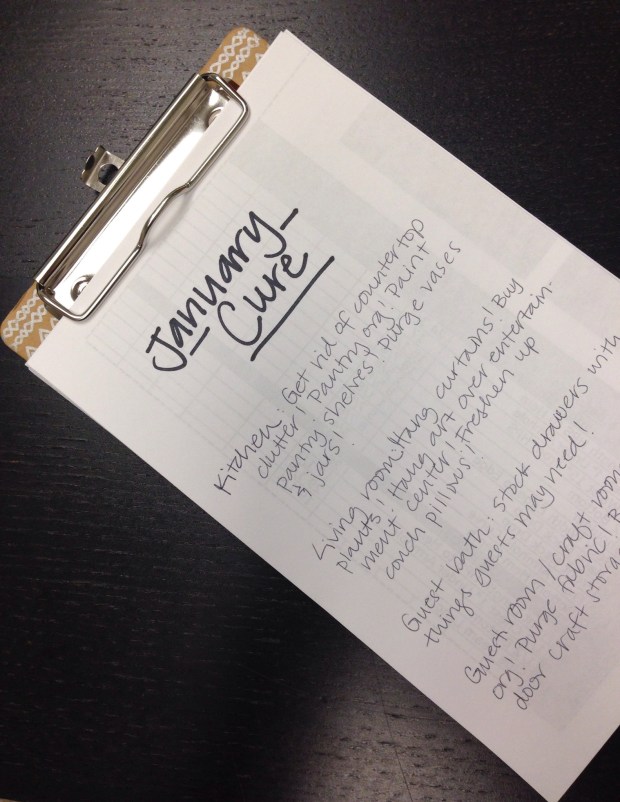 January
Cure
Kitchen: Get rid of countertop
clutter! Pantry org! Paint
pantry shelves! Purge vases
& jars!
Living room: Hang curtains! Buy
plants! Hang art over entertain-
ment center! Freshen up
couch pillows!
Guest bath: Stock drawers with
things guests may need!
Guest room / craft room:
org! Purge fabric!
door craft storage